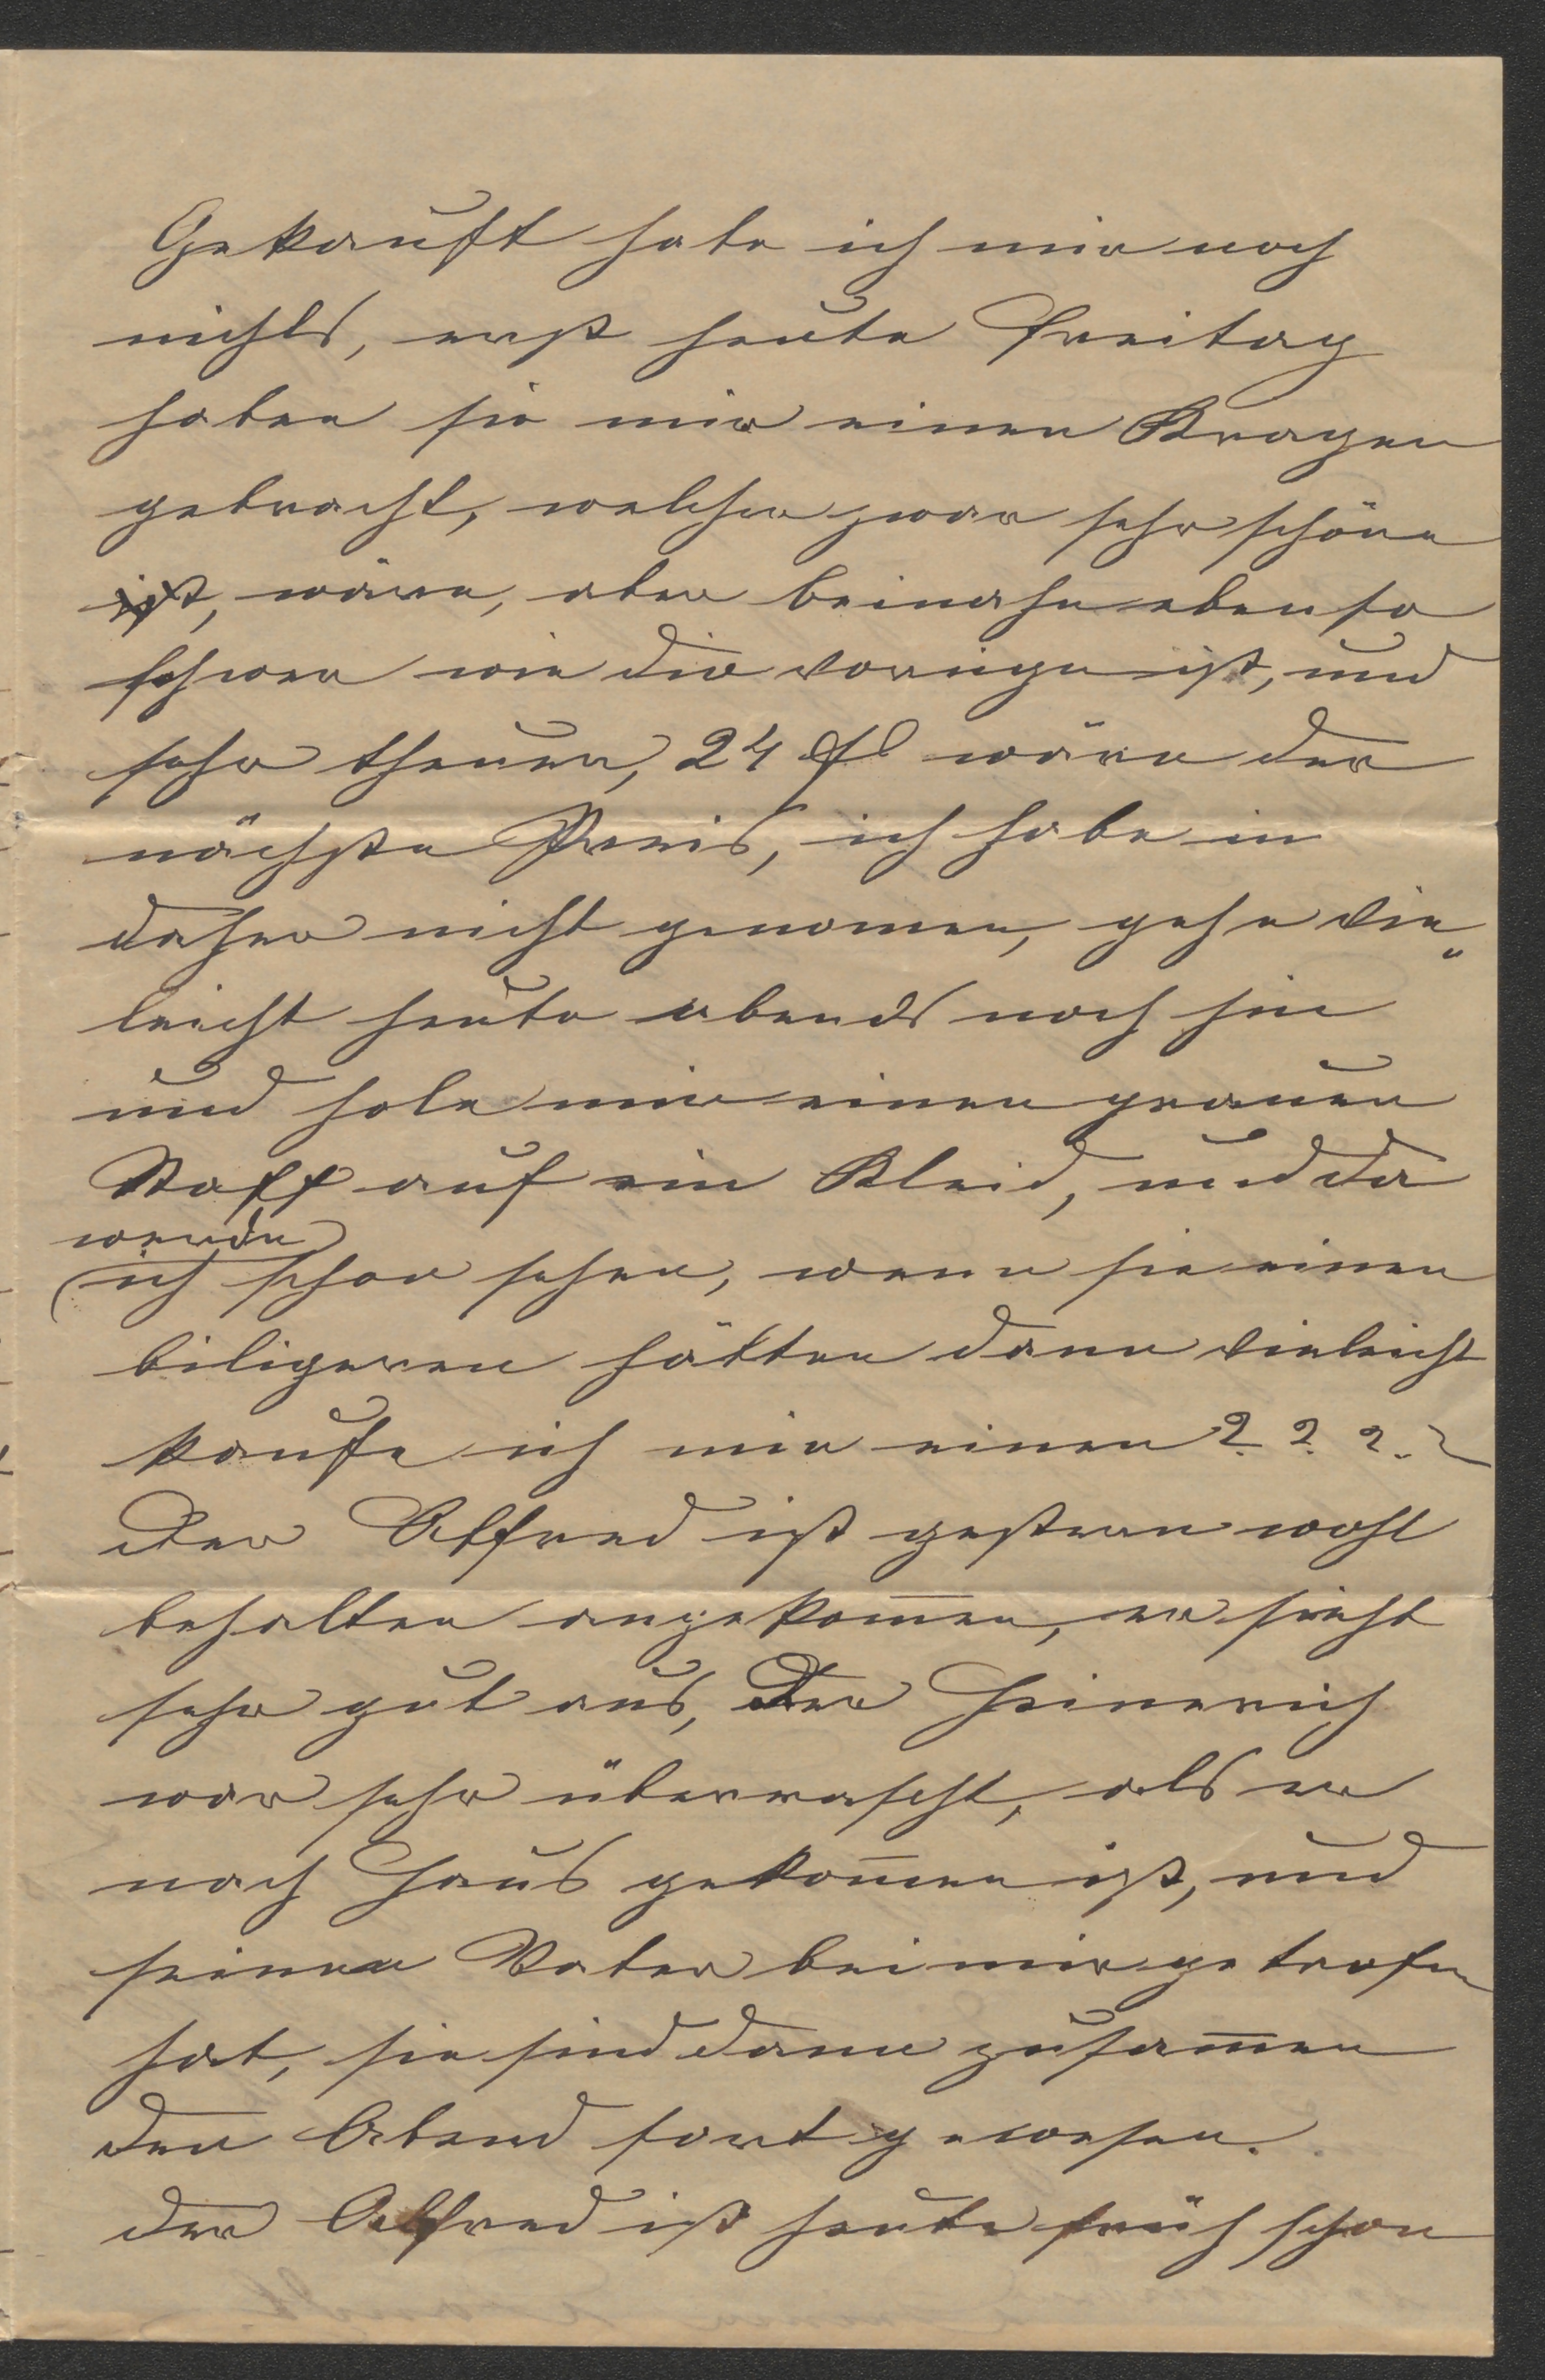 Gekauft habe ich mir noch
nichts, erst heute Freitag
haben sie mir einen Kragen
gebracht, welcher zwar sehr schön
ist, wäre, aber beinahe ebenso
schwer wie die vorige ist, und
sehr theuer, 24 fl wäre der
nächste Preis, ich habe in
daher nicht genomen, gehe vie„
leicht heute abends noch hin
und hole mir einen grauen
Stoff auf ein Kleid, und da
werde
ich schon sehen, wenn sie einen
biligeren hätten dann vieleicht
kaufe ich mir einen ? ? ? ?
Der Alfred ist gestern wohl
behalten angekom̅en, er sieht
sehr gut aus, Der Heinerich
war sehr überrascht, als er
nach Haus gekom̅en ist, und
seinen Vater bei mir getrofen
hat, sie sind dann zusam̅en
den Abend fort gewesen.
der Alfred ist heute früh schon